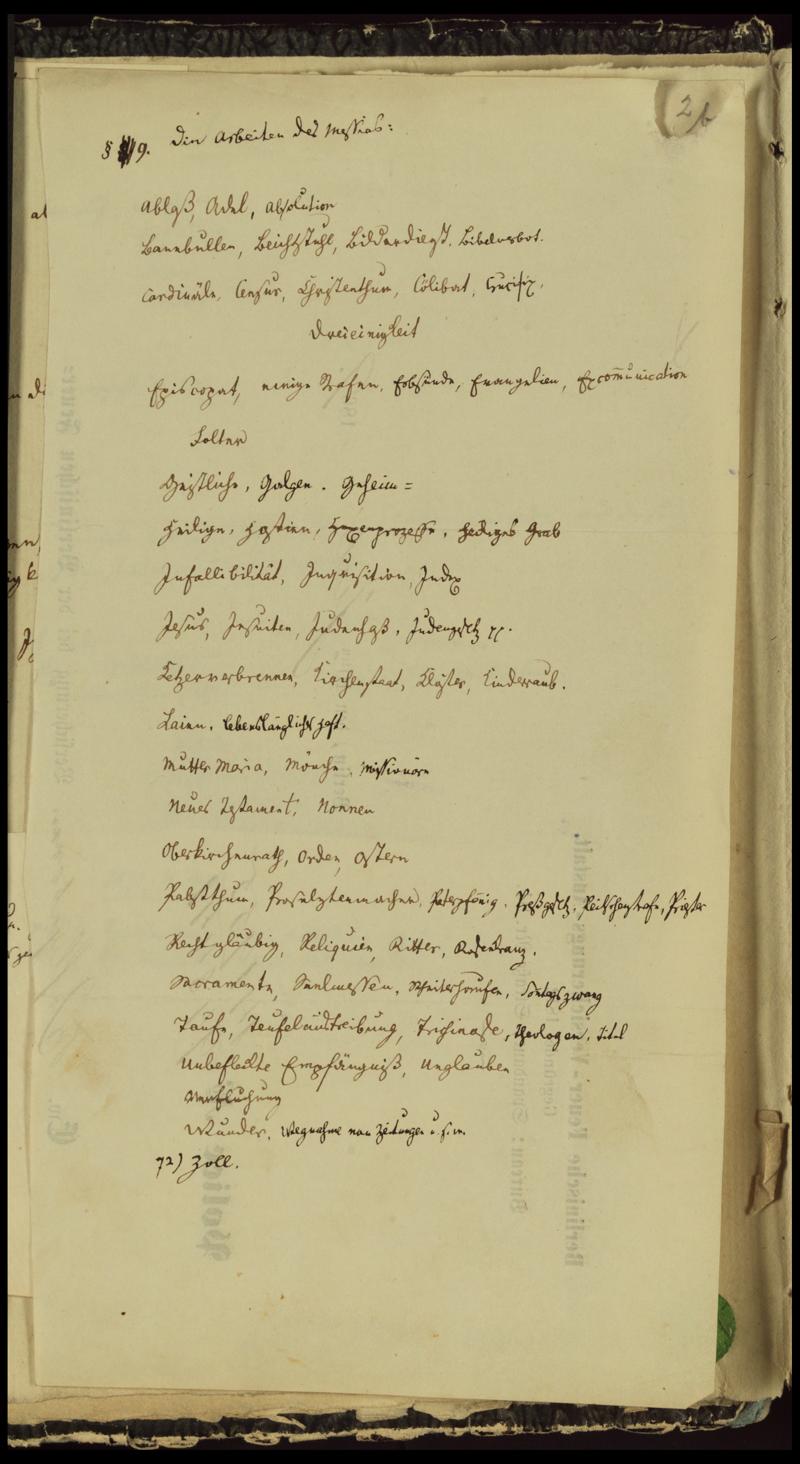 2b
§ 9. Die Arbeiten des Messias:
Ablaß, Adel, Absolution
Bannbullen, Beichtstuhl, Bilderdienst, Bibelverbot.
Cardinäle, Censur, Christenthum, Cölibat, Crucifix,
Dreieinigkeit
Episcopat, ewige Strafen, Erbsünde, Evangelien, Excommunication
Folter
Geistliche, Galgen. Geheim=
Heilige, Hostien, Hexenprozesse, heiliges Grab
Infallibilität, Inquisition, Index
Jesus, Jesuiten, Judenhaß, Judengesetz pp.
Ketzerverbrennen, Kirchenstaat, Klöster, Kinderraub.
Laien, lebenslängliche Haft.
Mutter Maria, Mönche, Missionäre
Neues Testament, Nonnen
Oberkirchenrath, Orden, Ostern
Pabstthum, Proselytenmacherei, Peterpfennig, Preßgesetz, Peitschenstrafe, Priester
Rechtgläubig, Reliquien, Ritter, Rosenkranz.
Sacramente, Seelmessen, Scheiterhaufen, Sontagszwang
Taufe, Teufelaustreibung, Theologen, Titel
Unbefleckte Empfängniß, Unglauben
Verfluchung
Wunder, Wegnahme von Zeitungen u. s. w.
72) Zoll.